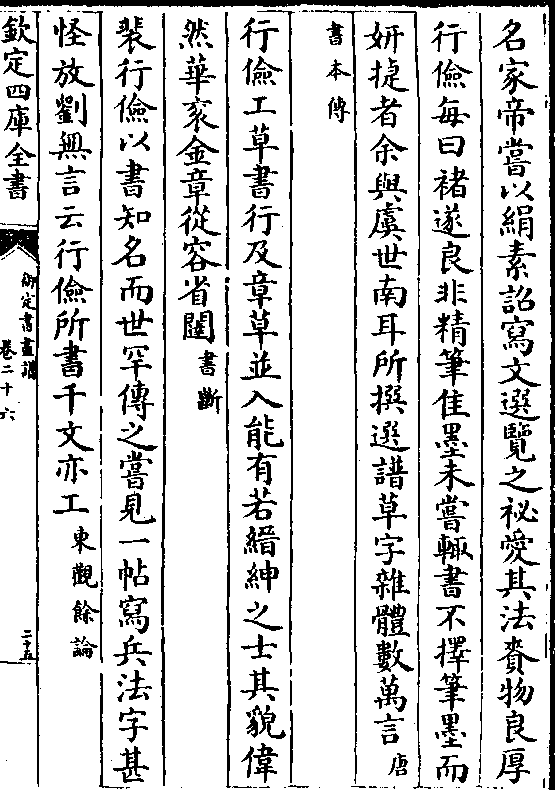 名家帝嘗以絹素詔寫文選覽之祕愛其法賚物良厚
行儉每曰褚遂良非精筆佳墨未嘗輒書不擇筆墨而
妍捷者余與虞世南耳所撰選譜草字雜體數萬言唐
書本傳
行儉工草書行及章草並入能有若縉紳之士其貌偉
然華衮金章從容省闥書斷
裴行儉以書知名而世罕傳之嘗見一帖寫兵法字甚
怪放劉無言云行儉所書千文亦工東觀餘論
欽定四庫全書
御定書畫譜
卷二十六
二十五